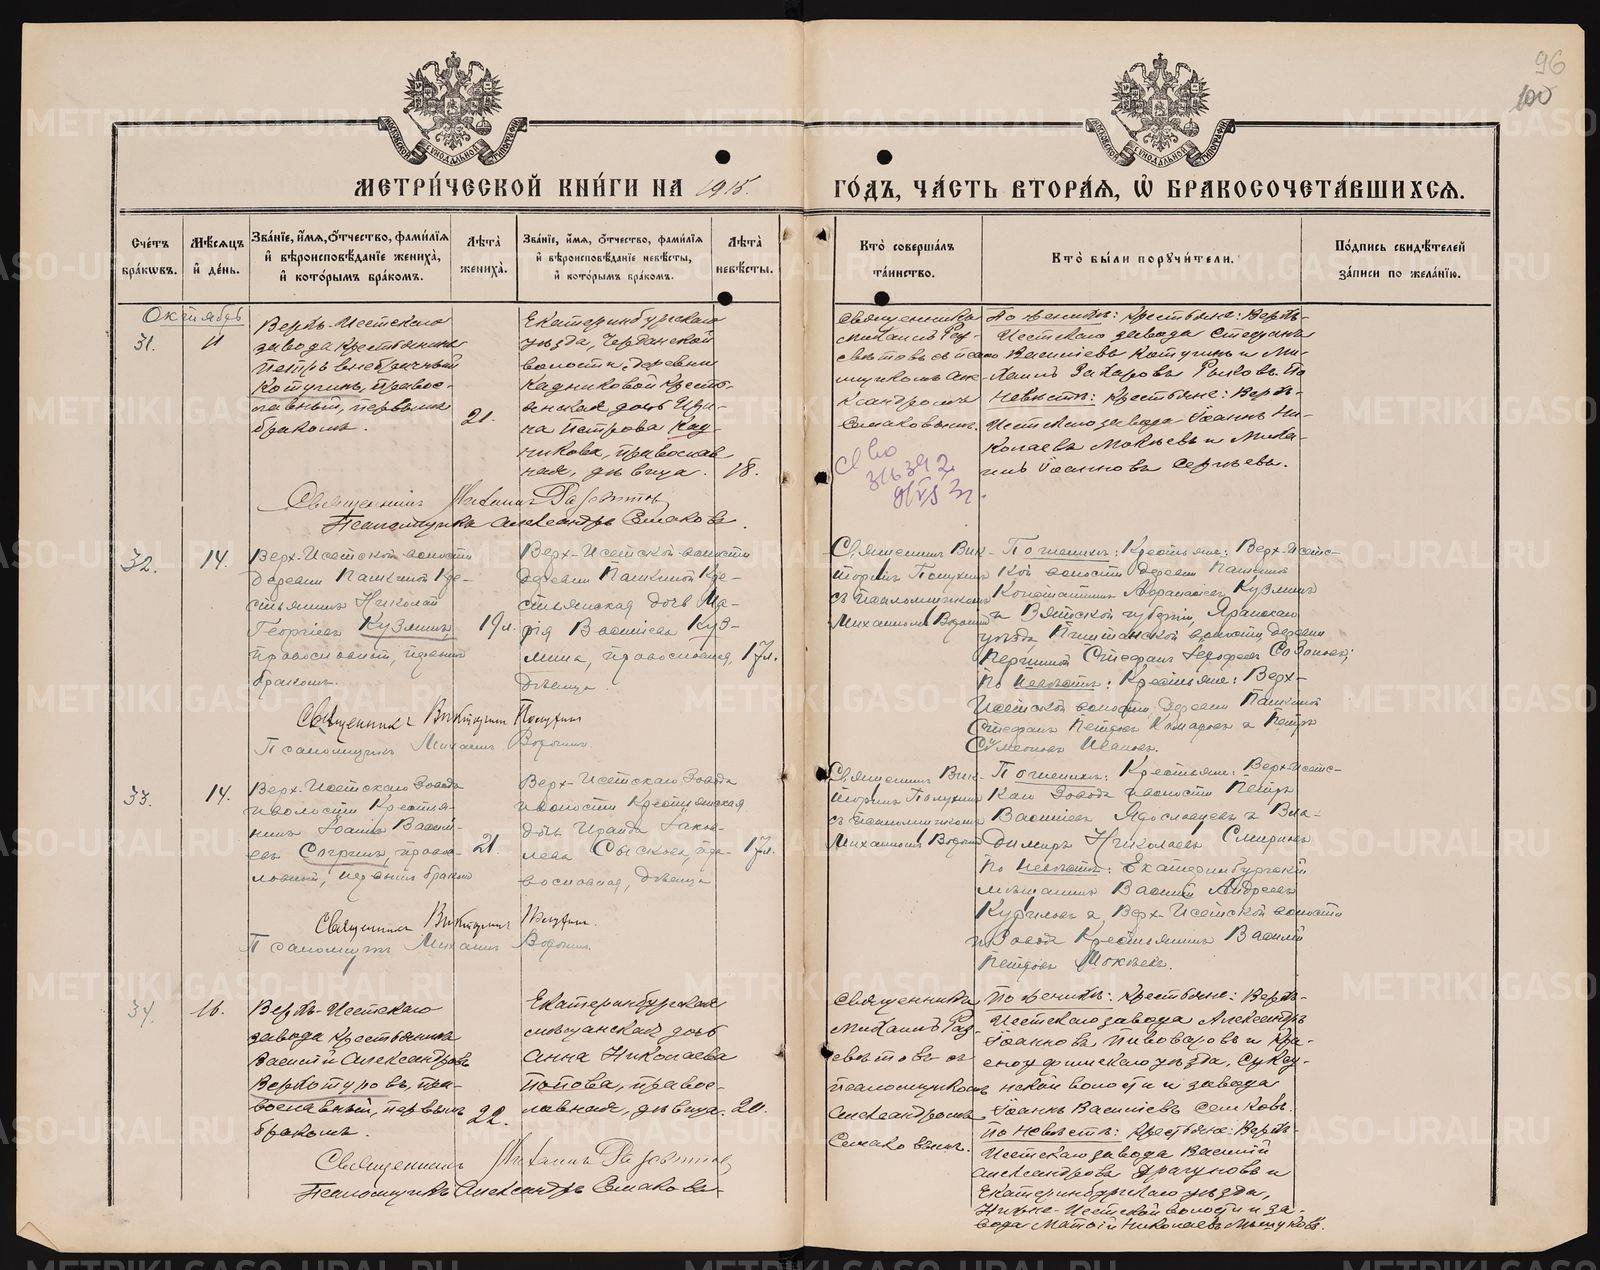 96
100
МЕТРИ́ЧЕСКОЙ КНИ́ГИ НА 1915.
ГО́ДЪ, ЧА́СТЬ ВТОРА́Я, Ѽ БРАКОСОЧЕТА́ВШИХСЯ.
Сче́тъ бра́кѡвъ.
Мѣ́сяцъ и҆ де́нь.
Зва́нїе, и҆́мя, ѻ҆́тчество, фами́лїя и҆ вѣроисповѣ́данїе жениха̀, и҆ кото́рымъ бра́комъ.
Лѣта̀ жениха̀.
Зва́нїе, и҆́мя, ѻ҆́тчество, фами́лїя и҆ вѣроисповѣ́данїе невѣ́сты, и҆ кото́рымъ бра́комъ.
Лѣта̀ невѣ́сты.
Кто̀ соверша́лъ та́инство.
Кто̀ бы́ли порꙋчи́тели.
По́дпись свидѣ́телей за́писи по жела́нїю.
Октябрь
31.
11
Верхъ-Исетскаго
завода крестьянинъ
Петръ внебрачный
Котугинъ, правос-
лавный, первымъ
бракомъ.
21.
Екатеринбургскаго
уѣзда,
волости, деревни
Кадниковой кресть-
янская дочь Ири-
на Петрова Кад-
никова, православ
ная, дѣвица.
18.
Священникъ
Михаилъ Раз-
свѣтовъ съ псало
мщикомъ Але-
ксандромъ
Ельаковымъ.
По женихѣ: крестьяне: Верхъ-
Исетскаго завода Степанъ
Василіевъ Котугинъ и Ми-
хаилъ Захаровъ Рыковъ. По
невѣстѣ: крестьяне: Верхъ-
Исетскаго завода Іоаннъ Ни-
колаевъ Мокѣевъ и Миха-
илъ Іоанновъ Сергѣевъ.
Священникъ Михаилъ Разсвѣтовъ
Псаломщикъ Александръ
32.
14.
Верх-Исетской волости
деревни Палкиной Кре-
стьянинъ Николай
Георгіевъ Кузминъ,
православный, первымъ
бракомъ.
19л.
Верх-Исетской волости
деревни Палкиной Кре-
стьянская дочь Ма-
рія Василіева Куз-
мина, православная,
дѣвица.
17л.
Священникъ Вик-
торинъ Полухинъ
съ псаломщикомъ
Михаиломъ
По женихѣ: Крестьяне: Верх-Исетс-
кой волости деревни Палкиной
Константинъ Аѳанасіевъ Кузминъ
и Вятской губерніи, Яранскаго
уѣзда, волости, деревни
Стефанъ
По невѣстѣ: Крестьяне: Верх-
Исетской волости деревни Палкиной
Стефанъ Петровъ и Петръ
Сѵмеоновъ Ивановъ.
Священникъ Викторинъ Полухинъ
Псаломщикъ Михаилъ
33.
14.
Верх-Исетскаго Завода
и волости Крестья-
нинъ Іоаннъ Васил-
евъ Согринъ, право-
славный, первымъ бракомъ
21.
Верх-Исетскаго Завода
и волости Крестьянская
дочь Ираида Іаков-
лева Сыскова, пра-
вославная, дѣвица
17л.
Священникъ Вик-
торинъ Полухинъ
съ псаломщикомъ
Михаиломъ
По женихѣ: Крестьяне: Верх-Исетс-
каго Завода и волости Петръ
Василіевъ Ярославцевъ и Вла-
димиръ Николаевъ Смирновъ
По невѣстѣ: Екатеринбургскій
мѣщанинъ Василій Андреевъ
и Верх-Исетской волости
и Завода Крестьянинъ Василій
Петровъ Мокѣевъ.
Священникъ Викторинъ Полухинъ
Псаломщикъ Михаилъ
34.
16.
Верхъ-Исетскаго
завода крестьянинъ
Василій Александровъ
Верхотуровъ, пра-
вославный, первымъ
бракомъ.
22.
Екатеринбургская
мѣщанская дочь
Анна Николаева
Попова, правос-
лавная, дѣвица.
20.
Священникъ
Михаилъ Раз-
свѣтовъ съ
псаломщикомъ
Александромъ
По женихѣ: крестьяне: Верхъ-
Исетскаго завода Александръ
Іоанновъ Пивоваровъ и Кра-
сноуфимскаго уѣзда,
волости и завода
Іоаннъ Василіевъ Семковъ.
По невѣстѣ: крестьяне: Верхъ-
Исетскаго завода Василій
Александровъ Драгуновъ и
Екатеринбургскаго уѣзда,
Нижне-Исетской волости и за-
вода Матѳій Николаевъ
Священникъ Михаилъ Разсвѣтовъ
Псаломщикъ Александръ
METRIKI.GASO-URAL.RU